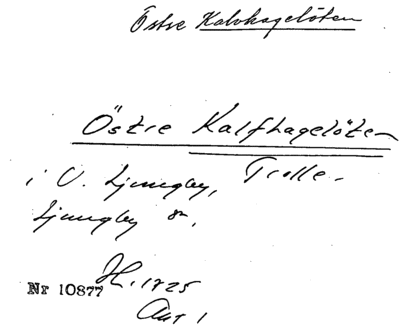 Östre Kalvhagelöten
Östre Kalfhagelöten
i V. Ljungby, Trolle-
Ljungby sn.
H. 1725
Nr 10877
Akt 1